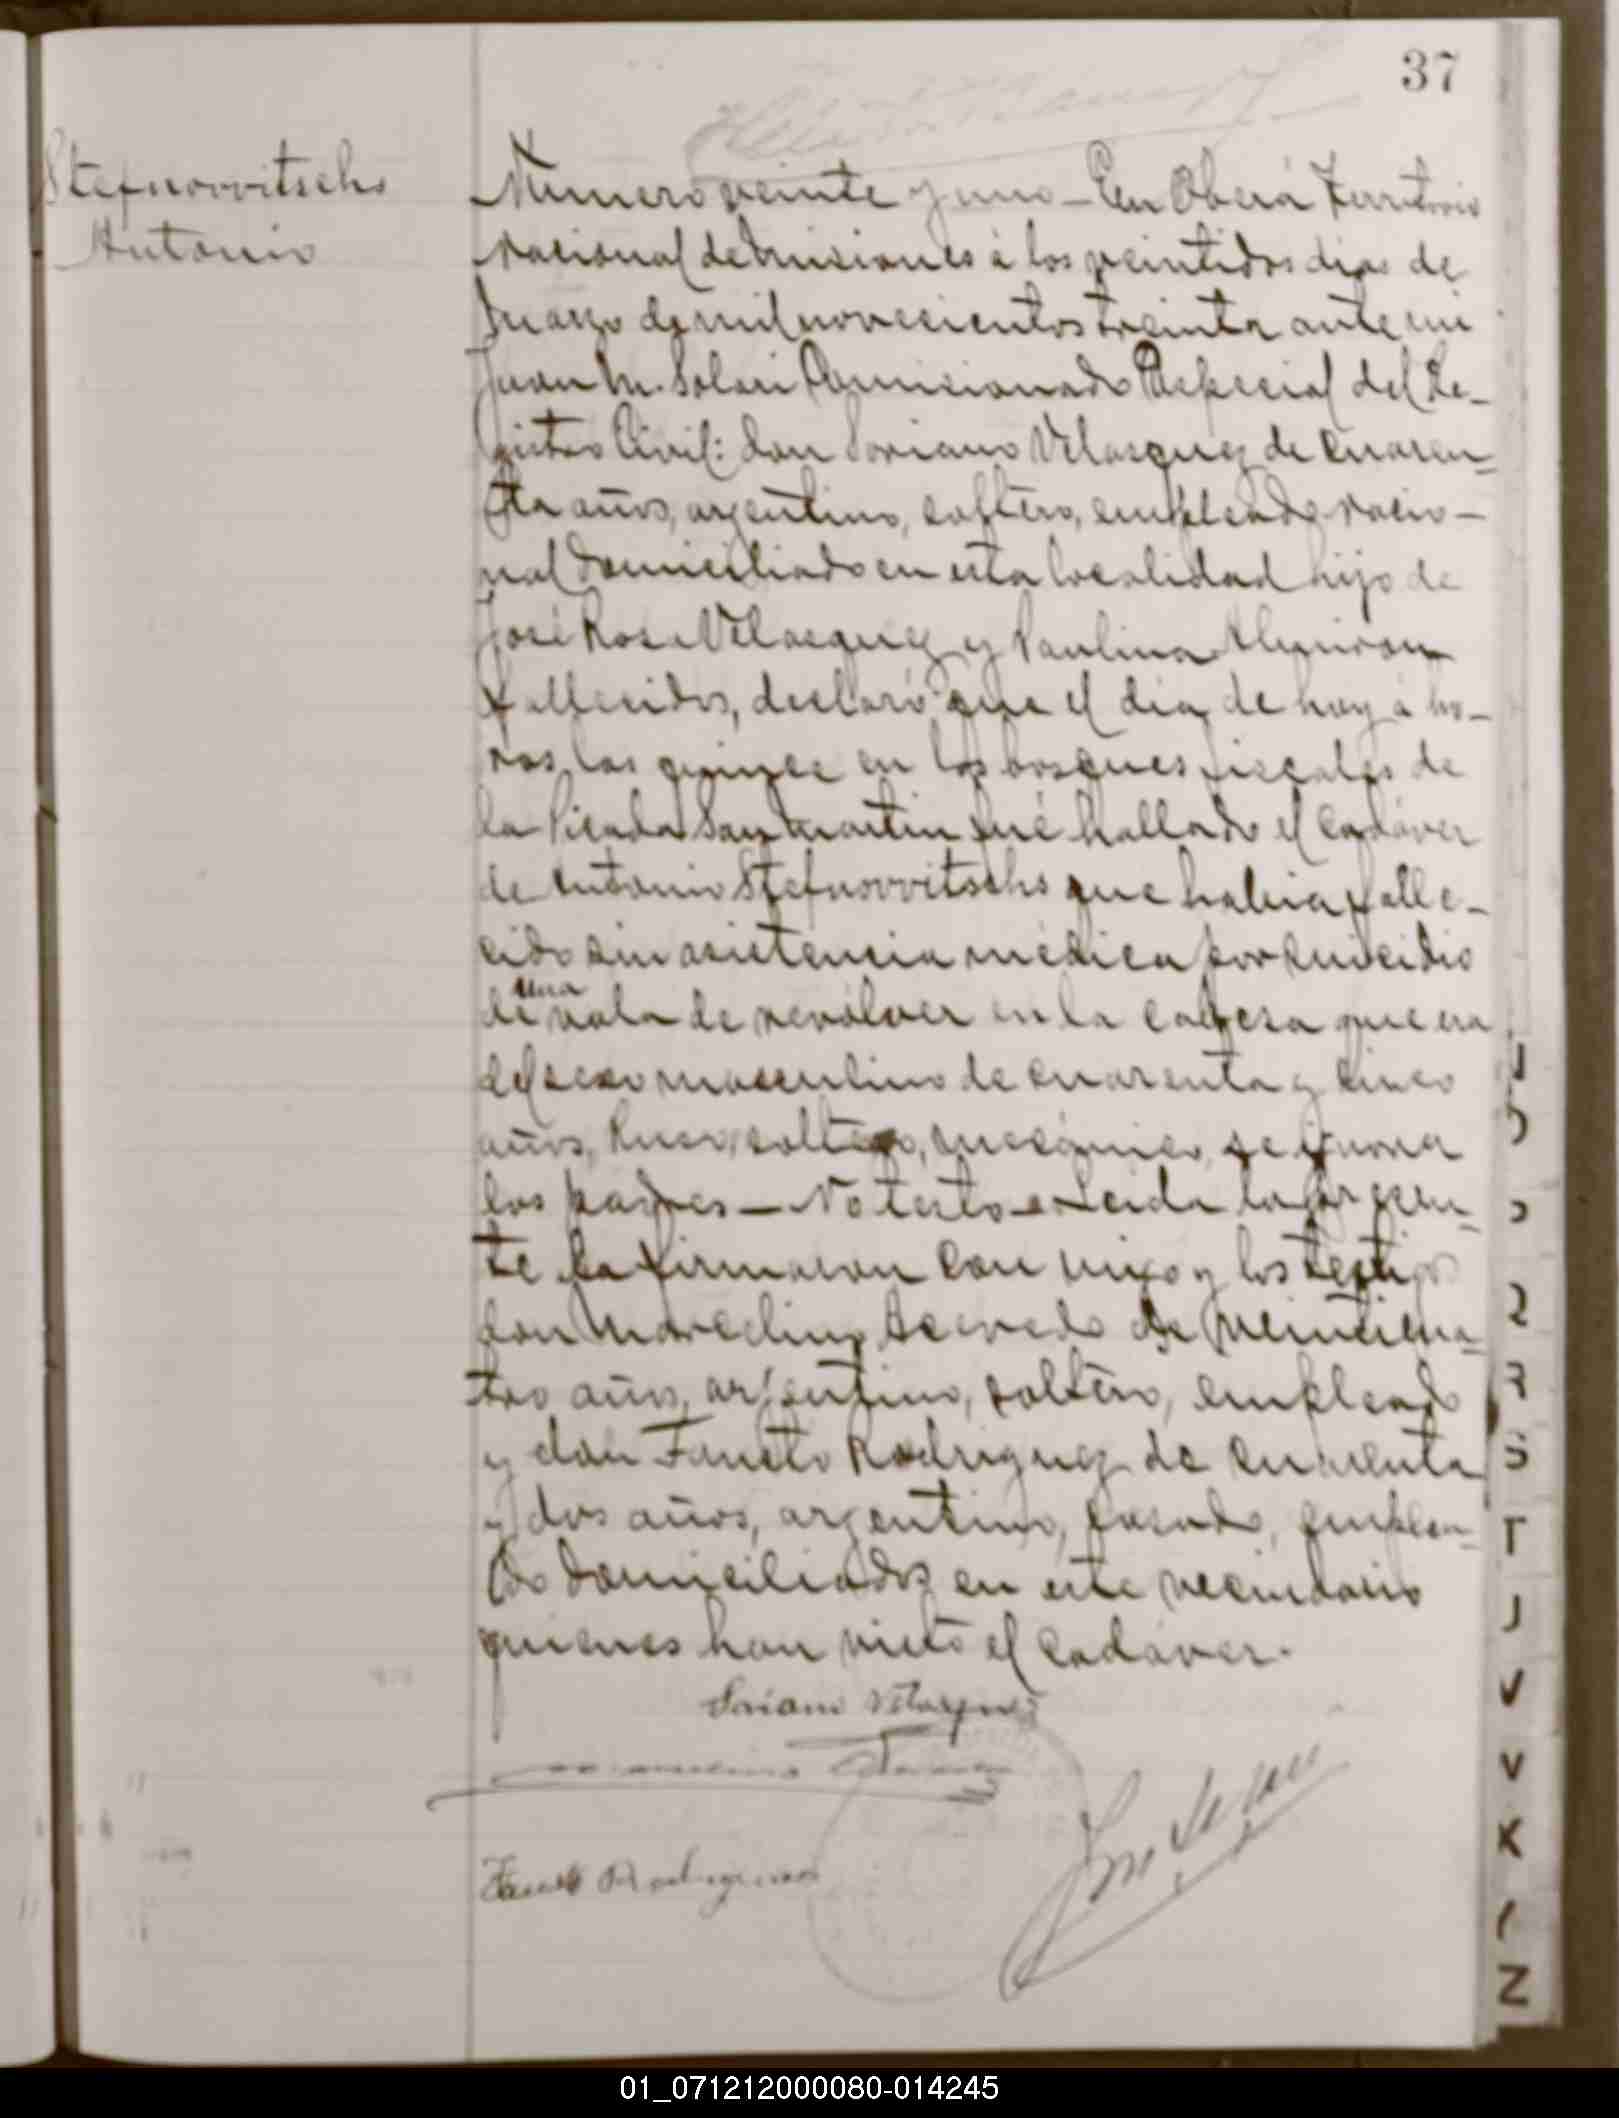 37
Stefnovvitschs
Antonio
Numero veinte y uno – En Oberá Territorio
nacional de Misiones á los veintidos dias de
Marzo de mil novecientos treinta ante mi
Juan M. Solari Comisionado Especial del Re-
gistro Civil: don Soriano Velasquez de cuaren-
ta años, argentino, soltero, empleado nacio-
nal domiciliado en esta localidad hijo de
José Rosa Velasquez y Paulina Almiron
fallecidos, declaró que el dia de hoy á ho-
ras las quince en los bosques fiscales de
la Picada San Martin fué hallado el cadáver
de Antonio Stefnovvitschs que habia falle-
cido sin asistencia médica por suicidio
de una vala de revólver en la cabesa que era
del sexo masculino de cuarenta y cinco
años, Ruso, soltero, mecánico, se ignora
los padres – No testo – Leida la presen-
te la firmaron con migo y los testigos
don Marcelino Acevedo de veinticua-
tro años, argentino, soltero, empleado
y don Fausto Rodriguez de cuarenta
y dos años, argentino, casado, emplea-
do domiciliados en este vecindario
quienes han visto el cadáver.
Soriano Velazquez
Fausto Rodriguez
01_071212000080-014245
J
2
R
S
T
J
V
V
K
Z